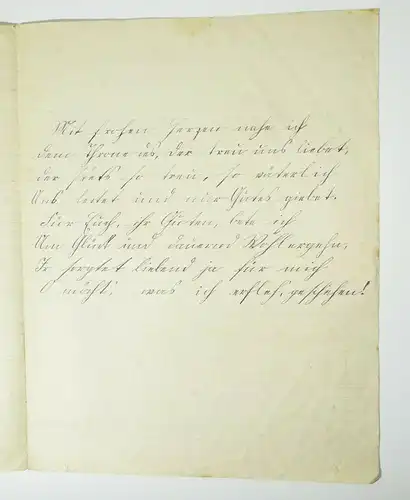 Mit frohen Herzen nahe ich
dem Throne des, der treu uns liebet,
der stets so treu, so väterlich
Uns leitet und nur Gutes giebet.
Für Euch, ihr Guten, bete ich
Um Glück und dauernd Wohlergehn,
Ihr sorgtet liebend ja für mich
O möcht', was ich erfleh', geschehen!